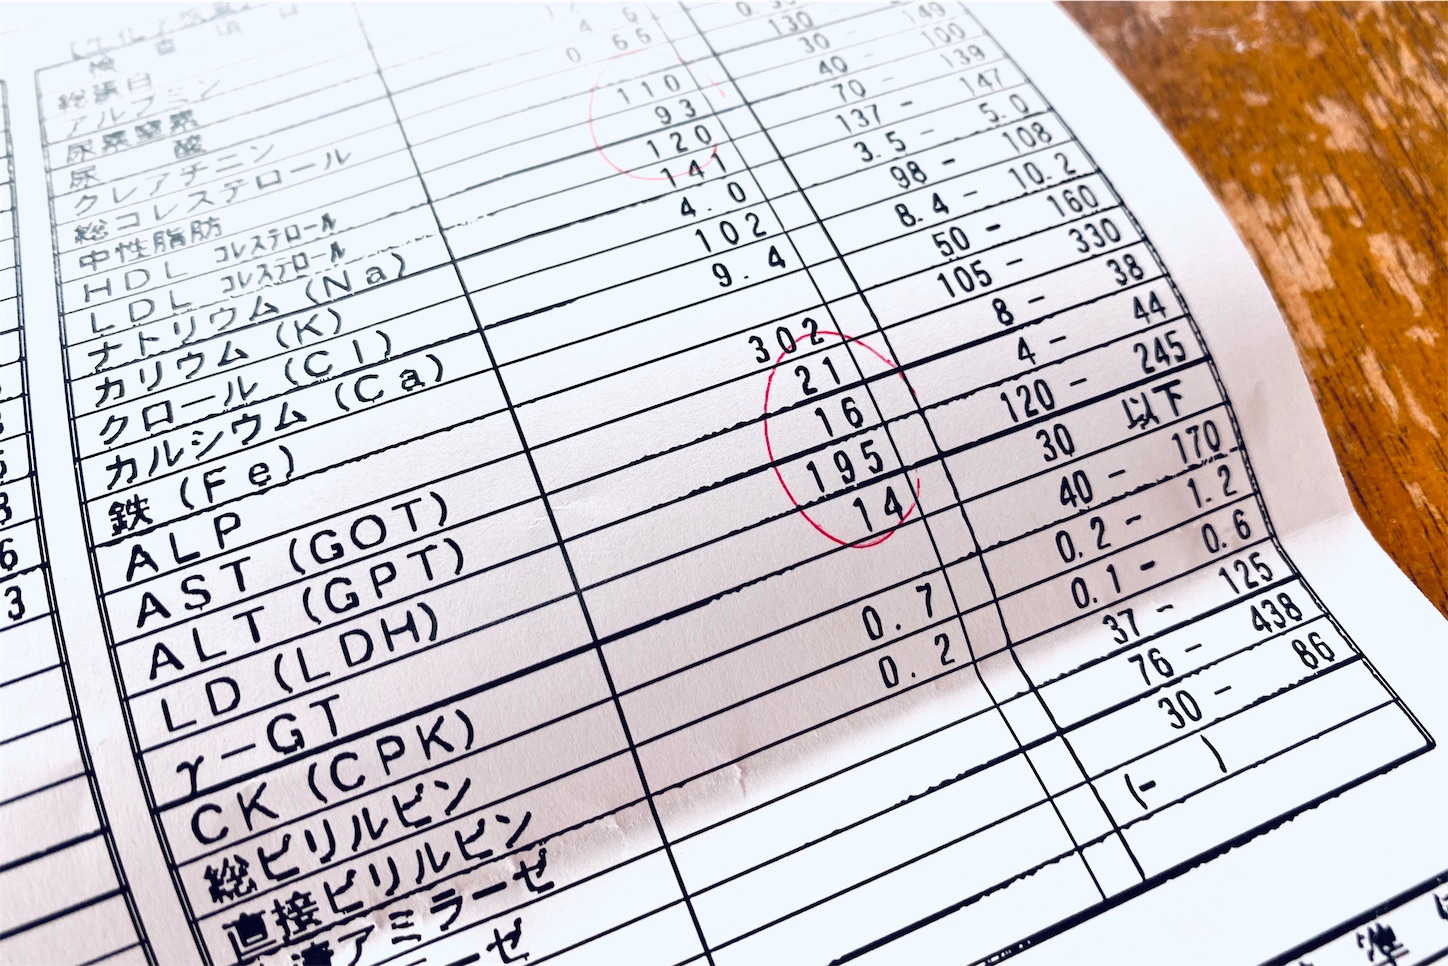 検 査 項 目
総蛋白
アルブミン
尿素窒素 12
尿 酸 4 6
クレアチニン 0 66
総コレステロール 130
中性脂肪 110 30 - 149
HDL コレステロール 93 40 - 100
LDL コレステロール 120 70 - 139
ナトリウム (Na) 141 137 - 147
カリウム (K) 4.0 3.5 - 5.0
クロール (Cl) 102 98 - 108
カルシウム (Ca) 9.4 8.4 - 10.2
鉄 (Fe) 50 - 160
ALP 302 105 - 330
AST (GOT) 21 8 - 38
ALT (GPT) 16 4 - 44
LD (LDH) 195 120 - 245
γ-GT 14 30 以下
CK (CPK) 40 - 170
総ビリルビン 0.7 0.2 - 1.2
直接ビリルビン 0.2 0.1 - 0.6
アミラーゼ 37 - 125
ーゼ 76 - 438
30 - 86
(- )
6
3
準